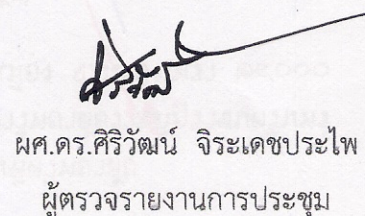 ผศ.ดร.ศิริวัฒน์ จิระเดชประไพ
ผู้ตรวจรายงานการประชุม